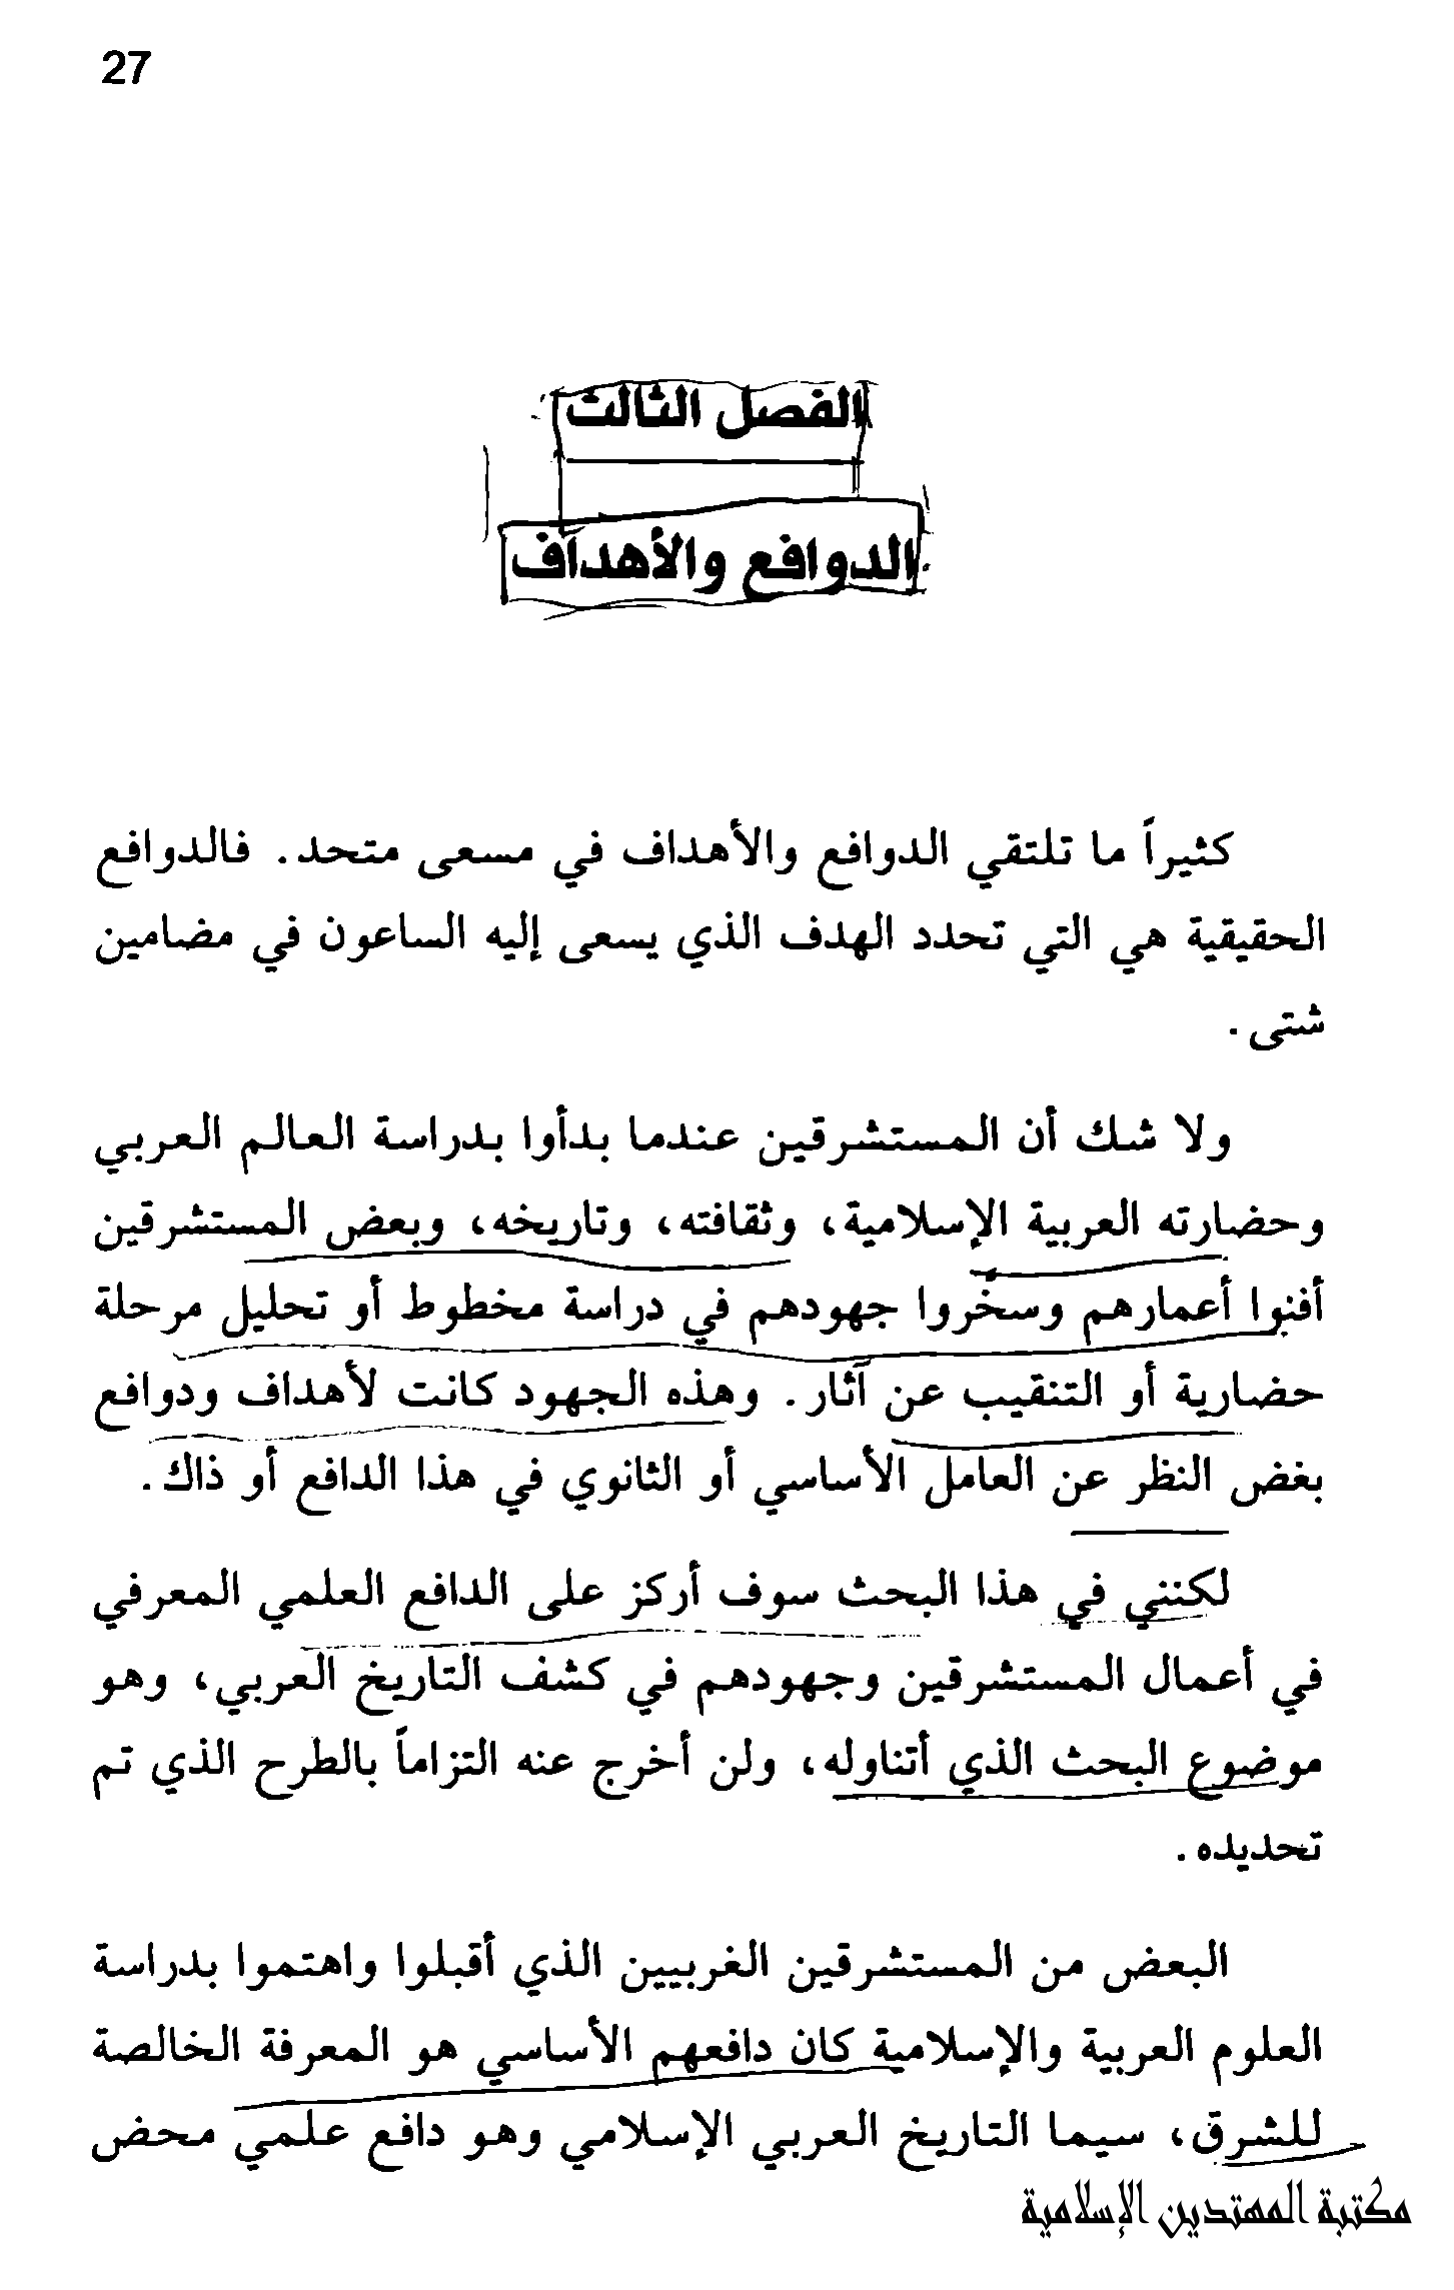 27
الفصل الثالث
الدوافع والأهداف
كثيراً ما تلتقي الدوافع والأهداف في مسعى متحد. فالدوافع
الحقيقية هي التي تحدد الهدف الذي يسعى إليه الساعون في مضامين
شتى.
ولا شك أن المستشرقين عندما بدأوا بدراسة العالم العربي
وحضارته العربية الإسلامية، وثقافته، وتاريخه، وبعض المستشرقين
أفنوا أعمارهم وسخّروا جهودهم في دراسة مخطوط أو تحليل مرحلة
حضارية أو التنقيب عن آثار. وهذه الجهود كانت لأهداف ودوافع
بغض النظر عن العامل الأساسي أو الثانوي في هذا الدافع أو ذاك.
لكنني في هذا البحث سوف أركز على الدافع العلمي المعرفي
في أعمال المستشرقين وجهودهم في كشف التاريخ العربي، وهو
موضوع البحث الذي أتناوله، ولن أخرج عنه التزاماً بالطرح الذي تم
تحديده.
البعض من المستشرقين الغربيين الذي أقبلوا واهتموا بدراسة
العلوم العربية والإسلامية كان دافعهم الأساسي هو المعرفة الخالصة
للشرق، سيما التاريخ العربي الإسلامي وهو دافع علمي محض
مكتبة المهتدين الإسلامية